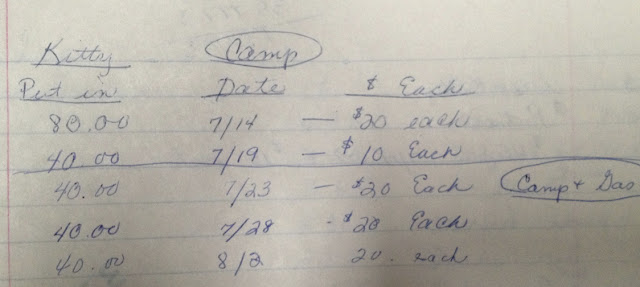 Kitty Camp
Put in Date $ Each
80.00 7/14 — $20 each
40.00 7/19 — $10 Each
40.00 7/23 — $20 Each Camp + Gas
40.00 7/28 - $20 Each
40.00 8/2 20. each